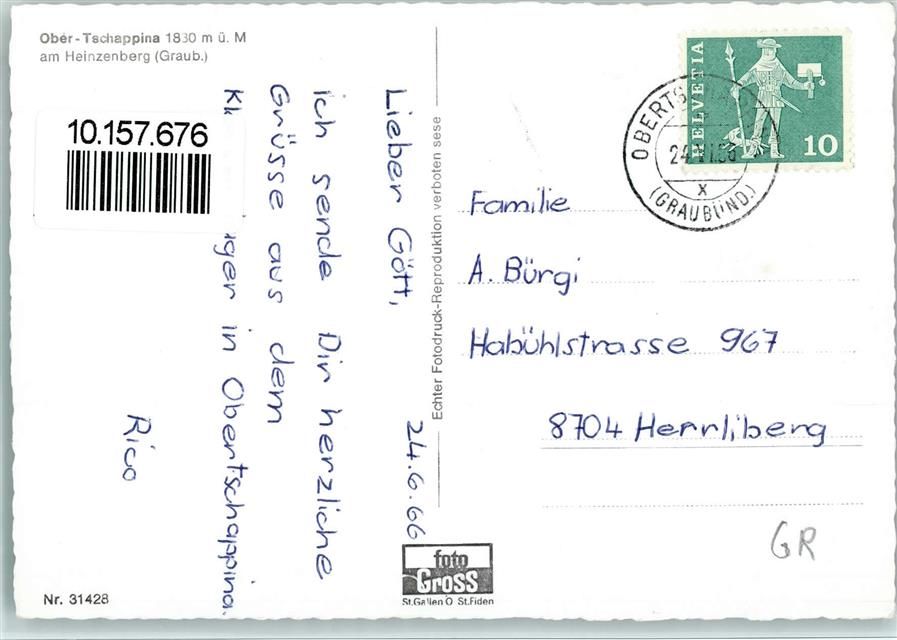 Ober-Tschappina 1830 m ü. M
am Heinzenberg (Graub.)
10.157.676
24.6.66
Lieber Gött,
ich sende Dir herzliche
Grüsse aus dem
in Obertschappina.
Rico
Echter Fotodruck-Reproduktion verboten sese
HELVETIA
10
(GRAUBÜND.)
X
Familie
A. Bürgi
Habühlstrasse 967
8704 Herrliberg
GR
foto
Gross
St.Gallen O St.Fiden
Nr. 31428